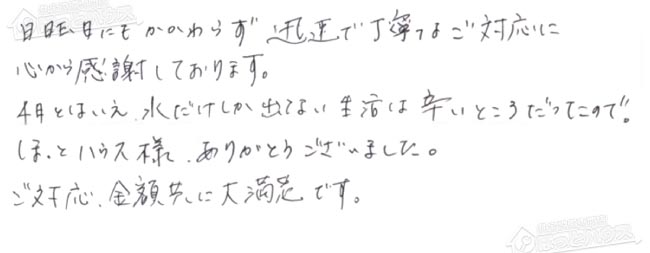 日曜日にもかかわらず 迅速で丁寧なご対応に
心から感謝しております。
4月とはいえ、水だけしか出ない生活は辛いところだったので。
ほっとハウス様、ありがとうございました。
ご対応、金額共に大満足です。